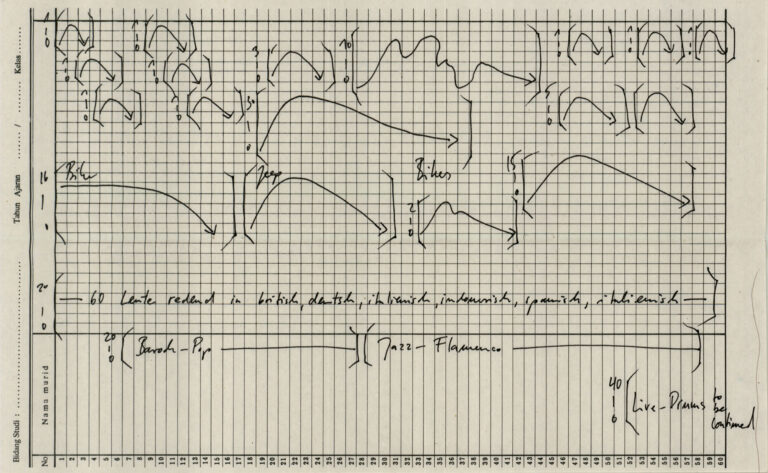 Bike
Jeep
Bikes
— 60 Leute redend in british, deutsch, italienisch, indonesisch, spanisch, italienisch —
Barock-Pop
Jazz - Flamenco
Live-Drums to
be
continued
20
1
0
20
1
0
40
1
0
16
1
0
2
1
0
15
1
0
10
1
0
Kelas
Tahun Ajaran /
Bidang Studi :
Nama murid
No
1 2 3 4 5 6 7 8 9 10 11 12 13 14 15 16 17 18 19 20 21 22 23 24 25 26 27 28 29 30 31 32 33 34 35 36 37 38 39 40 41 42 43 44 45 46 47 48 49 50 51 52 53 54 55 56 57 58 59 60